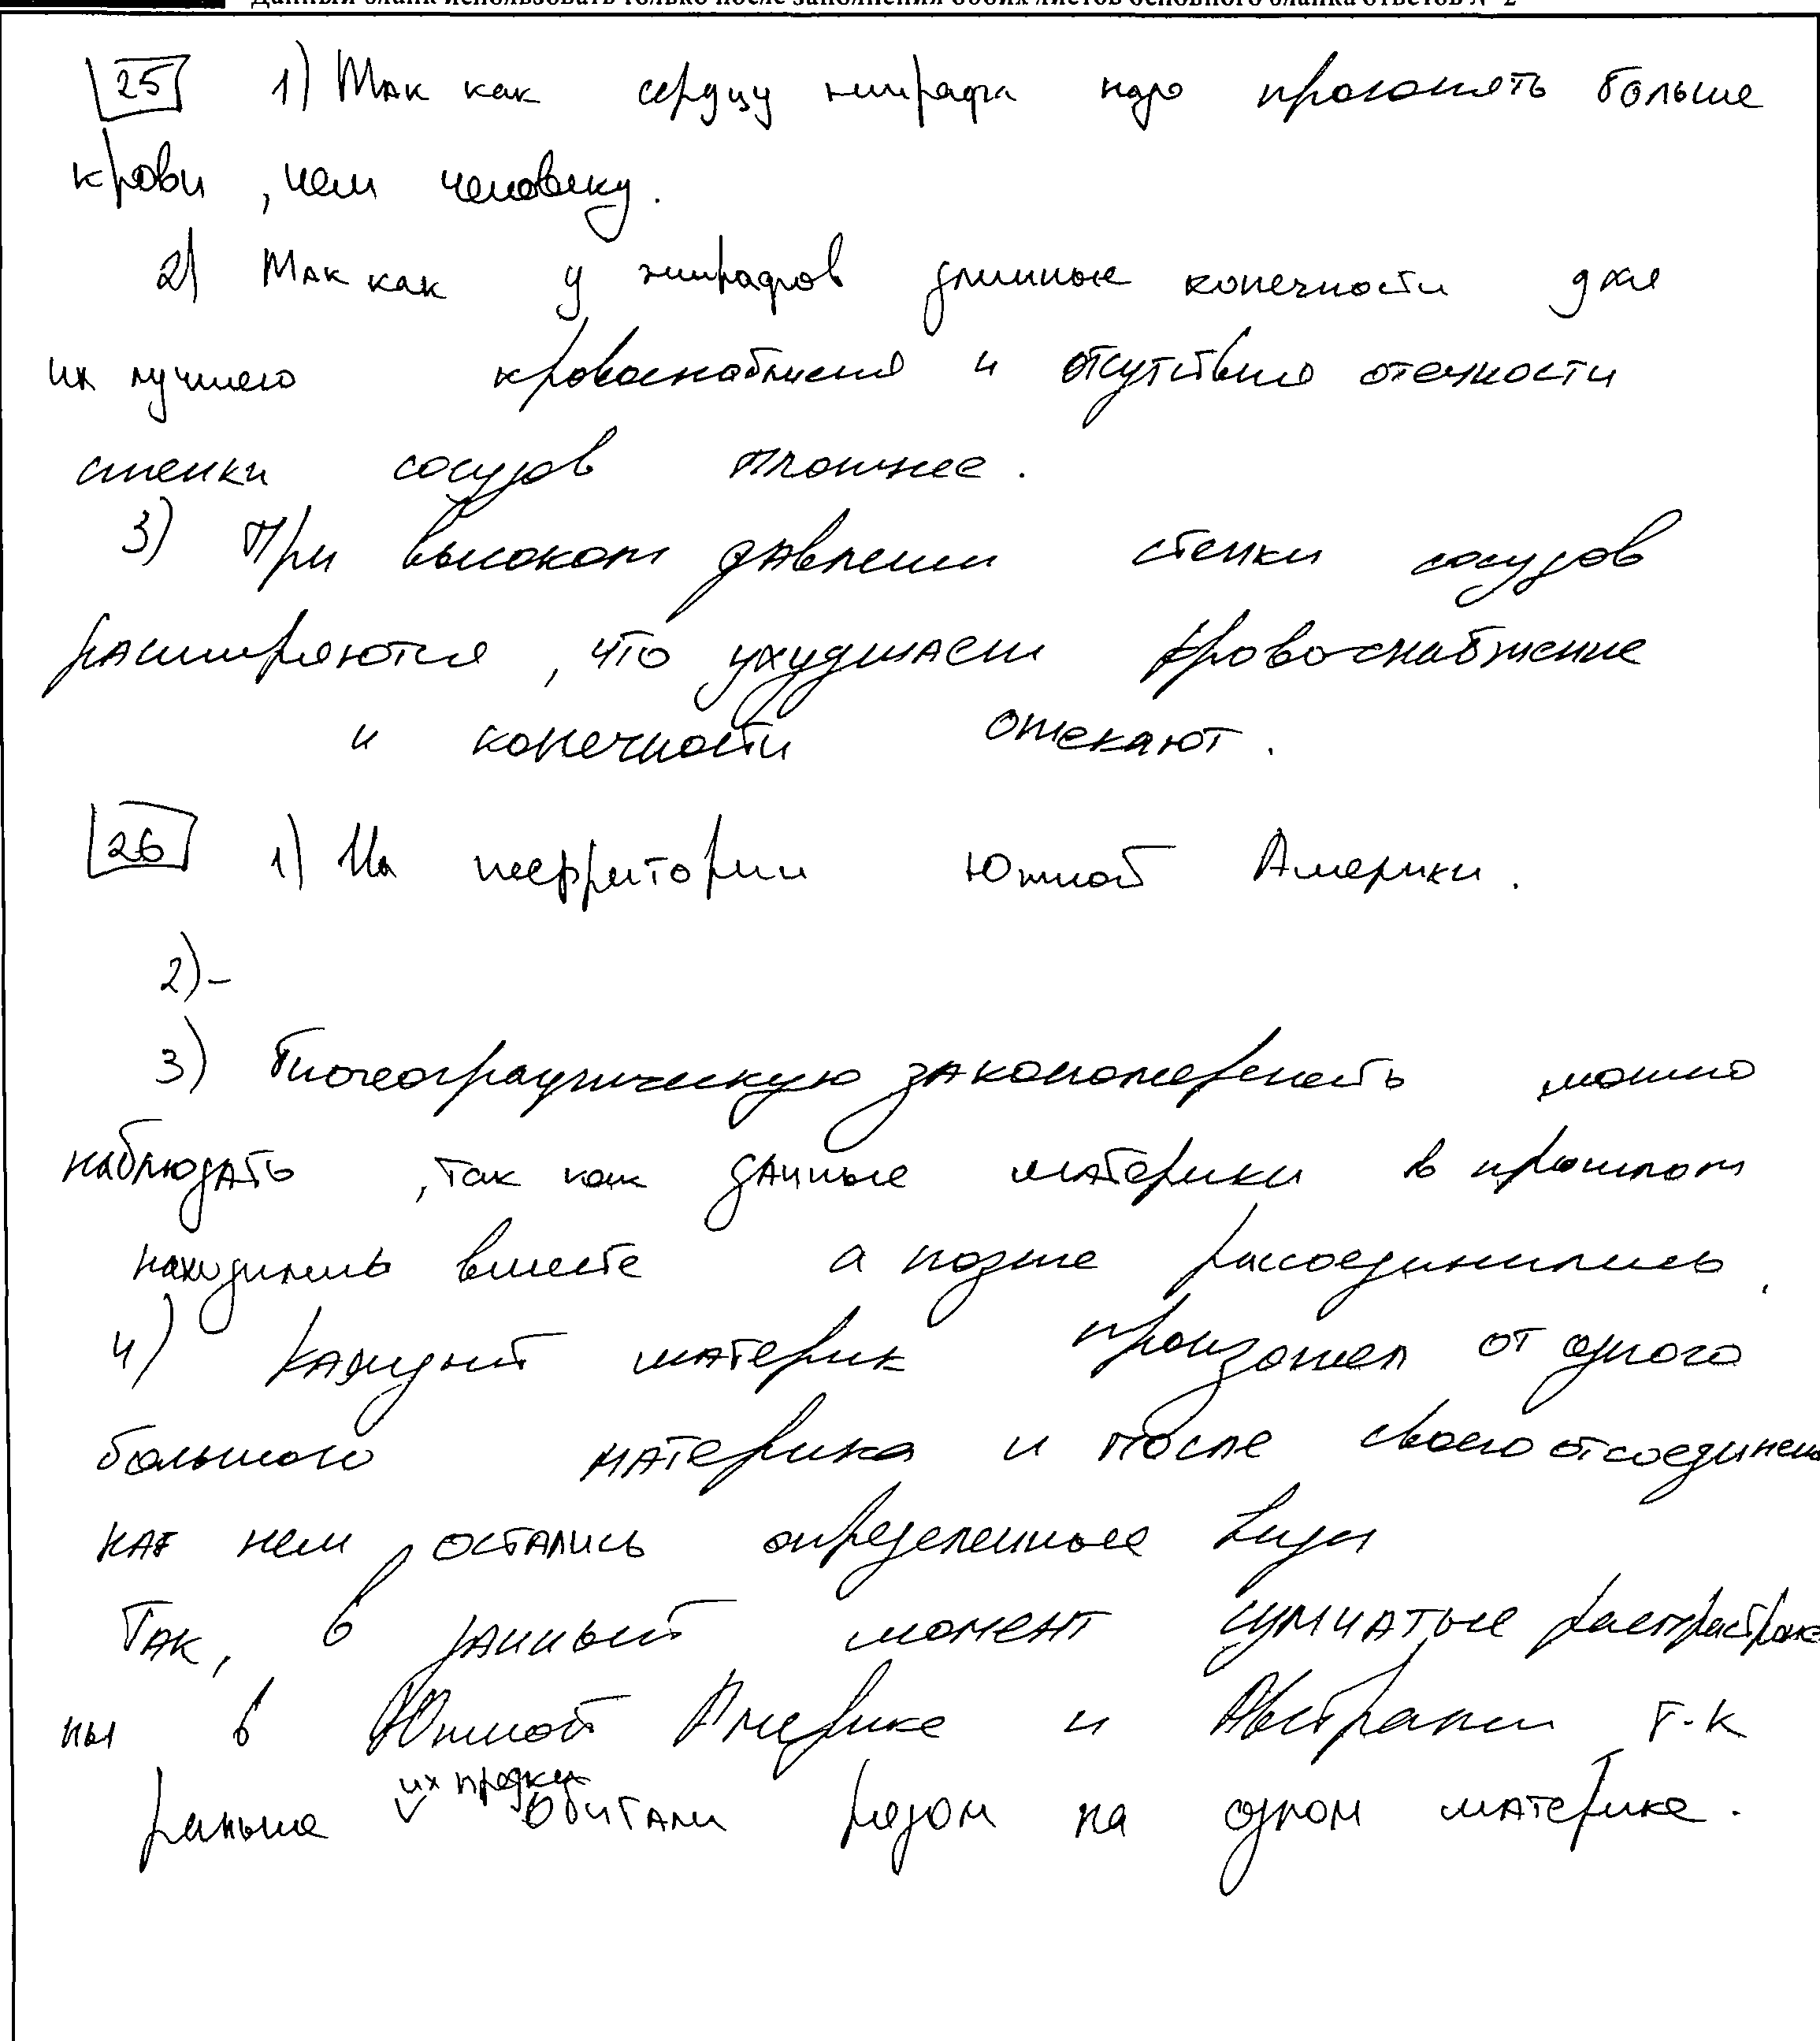 Данный бланк использовать только после заполнения обоих листов основного бланка ответов № 2
25 1) Так как сердцу жирафа надо прогонять больше
крови, чем человеку.
2) Так как у жирафов длинные конечности для
их лучшего кровоснабжения и отсутствия отечности
стенки сосудов плотнее.
3) При высоком давлении стенки сосудов
расширяются, что ухудшает кровоснабжение
и конечности отекают.
26 1) На территории Южной Америки.
2) -
3) Биогеографическую закономерность можно
наблюдать, так как данные материки в прошлом
находились вместе а позже рассоединились.
4) Каждый материк произошел от одного
большого материка и после своего отсоединени
на нем остались определенные виды
Так, в данный момент сумчатые распрастране
ны в Южной Америке и Австралии т.к
раньше их предки обитали рядом на одном материке.